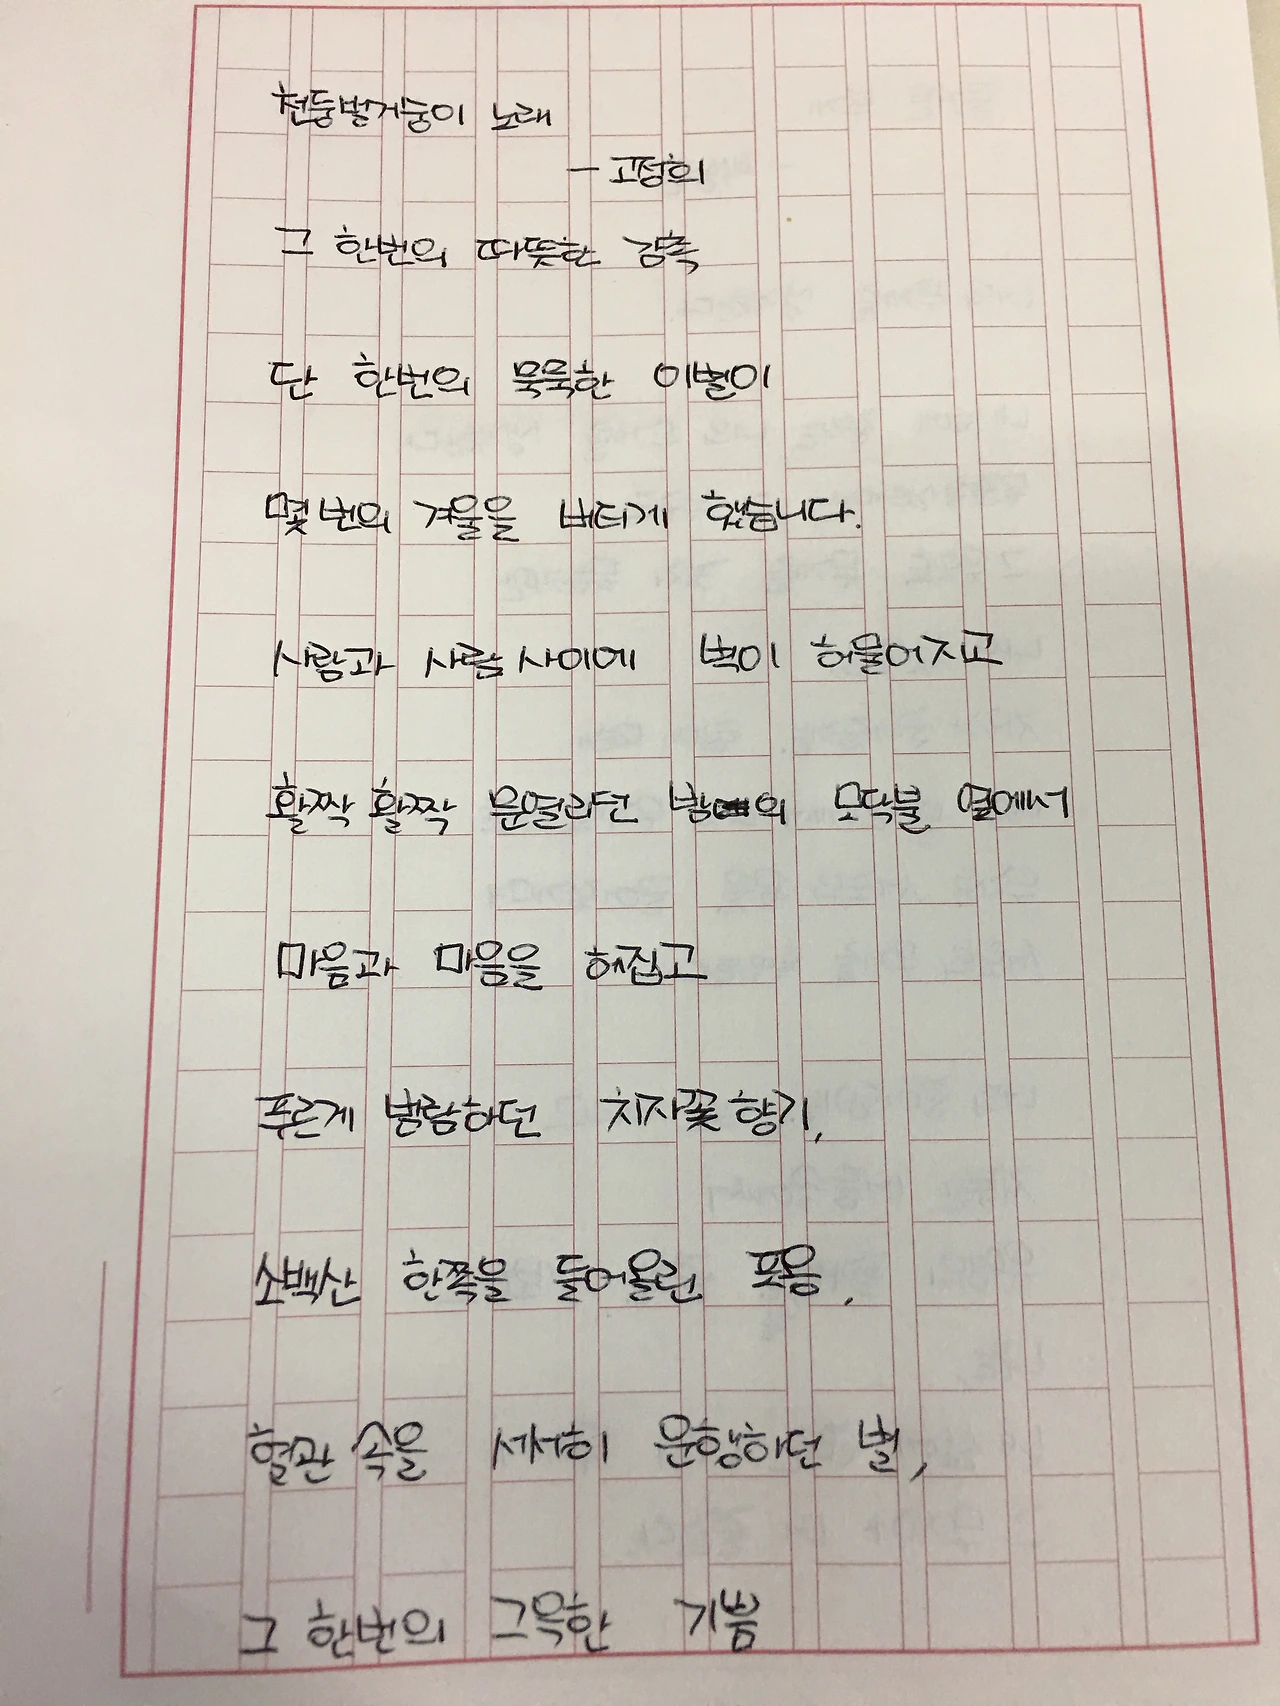 천둥벌거숭이 노래
- 고정희
그 한번의 따뜻한 감촉
단 한번의 묵묵한 이별이
몇번의 겨울을 버티게 했습니다.
사람과 사람 사이에 벽이 허물어지고
활짝 활짝 문열리던 밤의 모닥불 옆에서
마음과 마음을 헤집고
푸르게 범람하던 치자꽃 향기,
소백산 한쪽을 들어올린 포옹,
혈관 속을 서서히 운행하던 별,
그 한번의 그윽한 기쁨